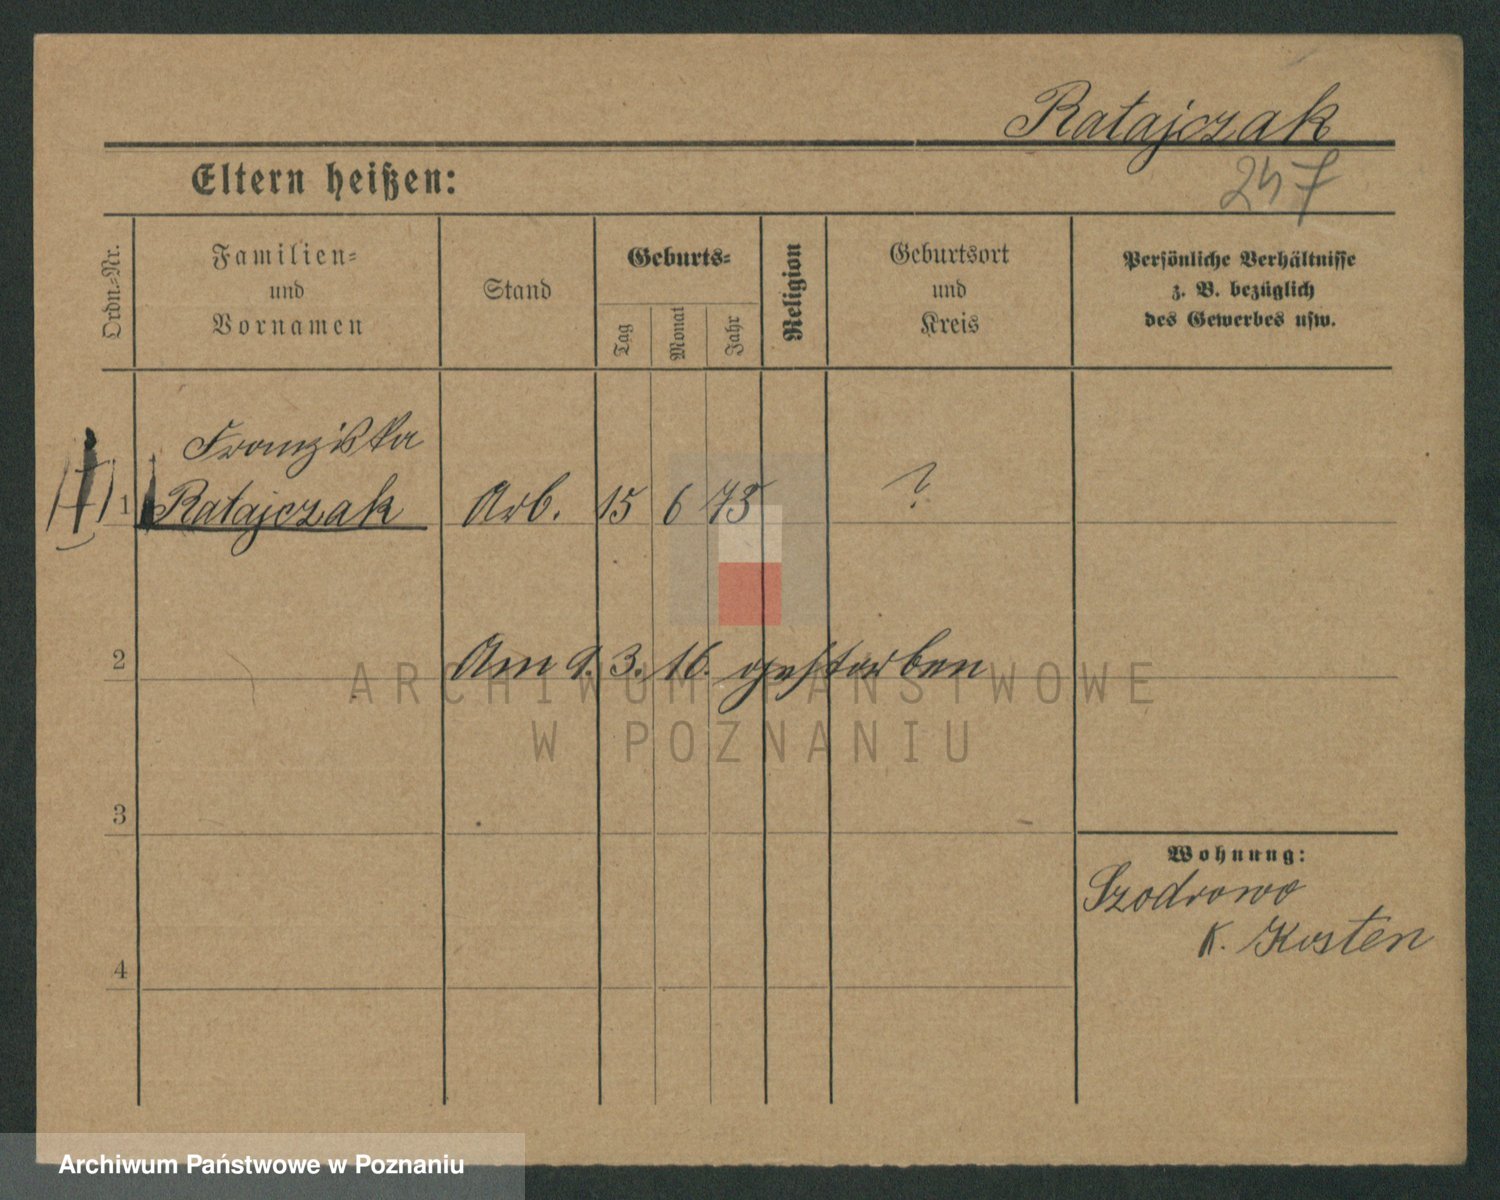 Ratajczak
247
Eltern heißen:
Ordn.-Nr.
Familien-
und
Vornamen
Stand
Geburts-
Tag
Monat
Jahr
Religion
Geburtsort
und
Kreis
Persönliche Verhältnisse
z. B. bezüglich
des Gewerbes usw.
Franziska
1 Ratajczak Arb. 15 6 73 ?
2 Am 9. 3. 16. gestorben
ARCHIWUM PAŃSTWOWE
W POZNANIU
3
Wohnung:
Szodrowo
K. Kosten
4
Archiwum Państwowe w Poznaniu